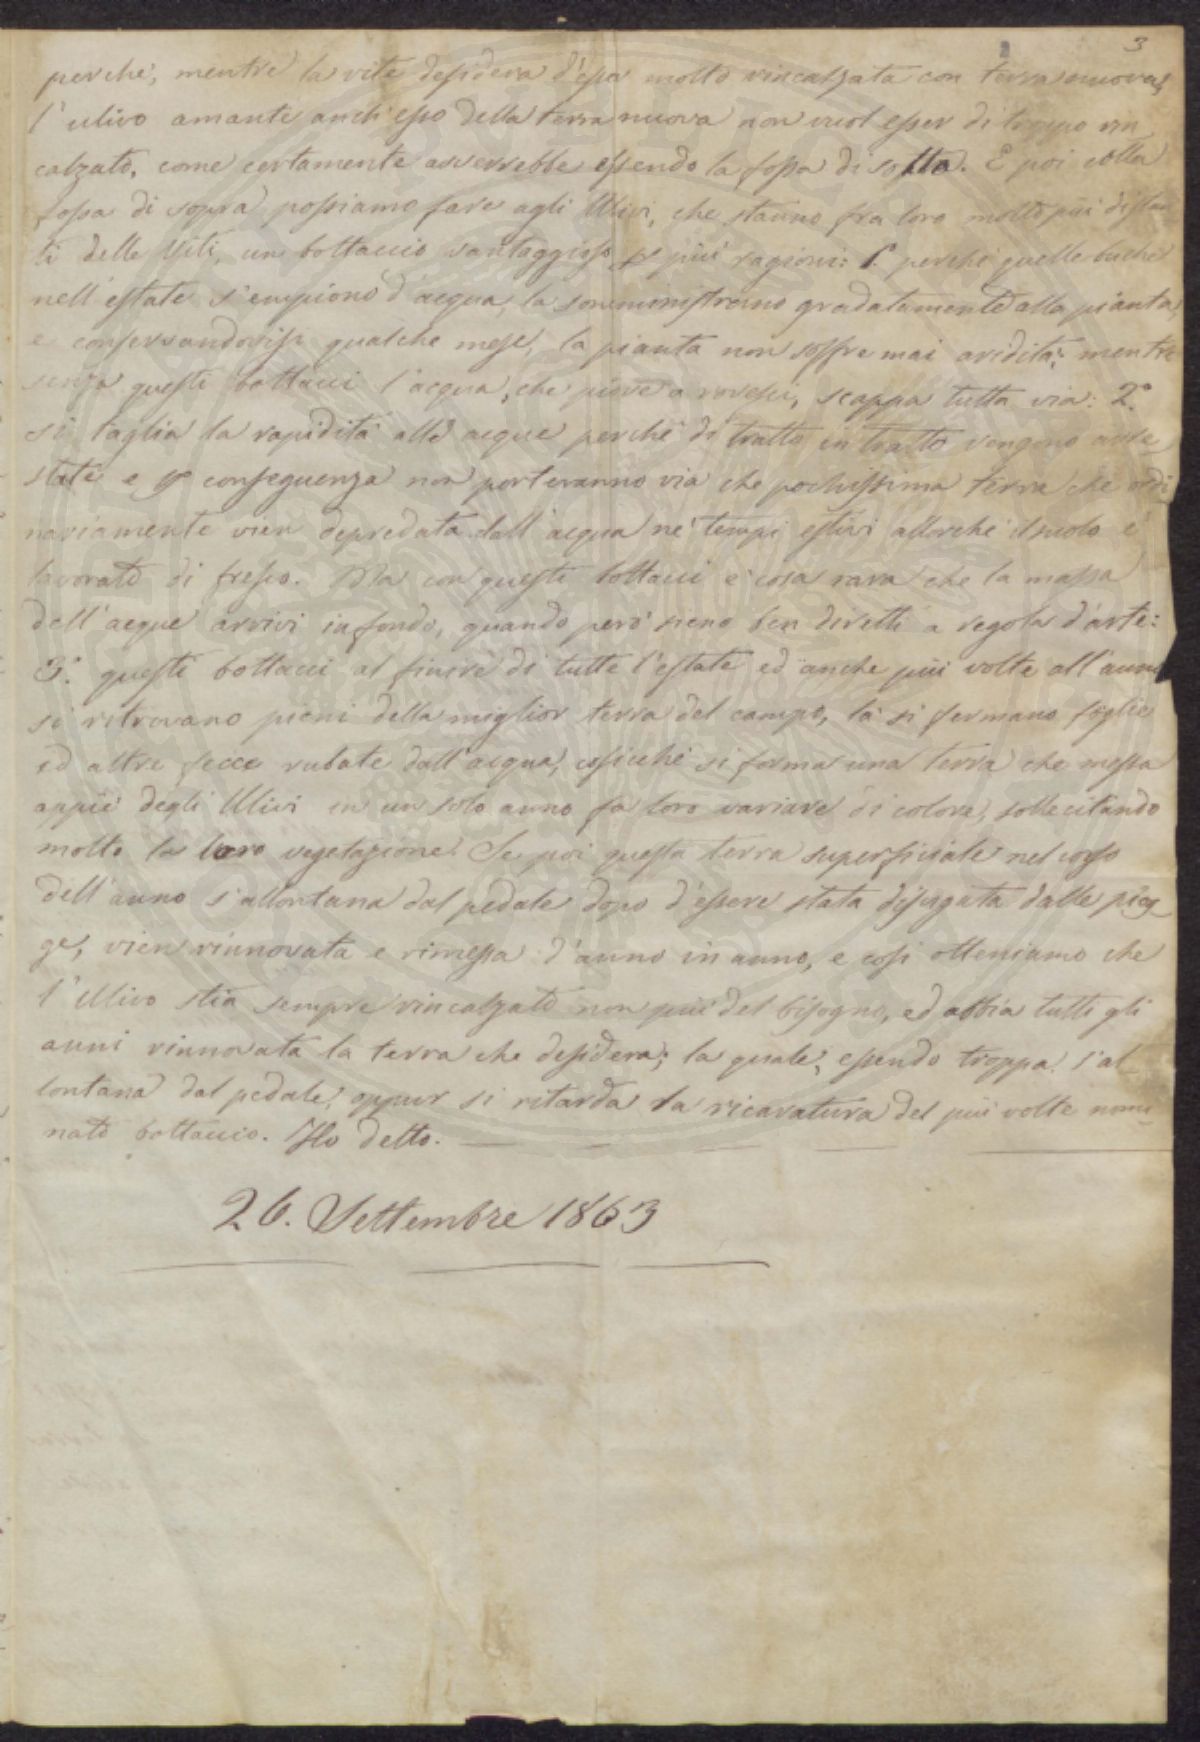 3
perche', mentre la vite desidera d'esser molto rincalzata con terra nuova,
l'ulivo amante anch'esso della terra nuova non vuol esser di troppo rin
calzato, come certamente avverrebbe essendo la fossa di sotto. E poi colla
fossa di sopra possiamo fare agli Ulivi, che stanno fra loro molto più distan
ti delle Viti, un bottaccio vantaggioso p più ragioni: 1.° perchè quelle buche
nell'estate s'empiono d'acqua, la somministrano gradatamente alla pianta,
e conservandovisi qualche mese, la pianta non soffre mai aridità; mentre
senza questi bottacci l'acqua, che piove a rovesci, scappa tutta via: 2.°
si taglia la rapidità alle acque perchè di tratto in tratto vengono arre
state e p conseguenza non porteranno via che pochissima terra che ordi
nariamente vien depredata dall'acqua ne' tempi estivi allorchè il suolo è
lavorato di fresco. Ma con questi bottacci è cosa rara che la massa
dell'acque arrivi in fondo, quando però sieno ben diretti a regola d'arte:
3.° questi bottacci al finire di tutte l'estate ed anche più volte all'anno
si ritrovano pieni della miglior terra del campo, là si fermano foglie
ed altre fecce rubate dall'acqua, cosicchè si forma una terra che messa
appiè degli Ulivi in un solo anno fa loro variare di colore, sollecitando
molto la loro vegetazione. Se poi questa terra superficiale nel corso
dell'anno s'allontana dal pedale dopo d'essere stata disugata dalle piog
ge, vien rinnovata e rimessa d'anno in anno, e così otteniamo che
l'Ulivo stia sempre rincalzato non più del bisogno, ed abbia tutti gli
anni rinnovata la terra che desidera; la quale, essendo troppa s'al
lontana dal pedale, oppur si ritarda la ricavatura del più volte nomi
nato bottaccio. Ho detto.
26. Settembre 1863